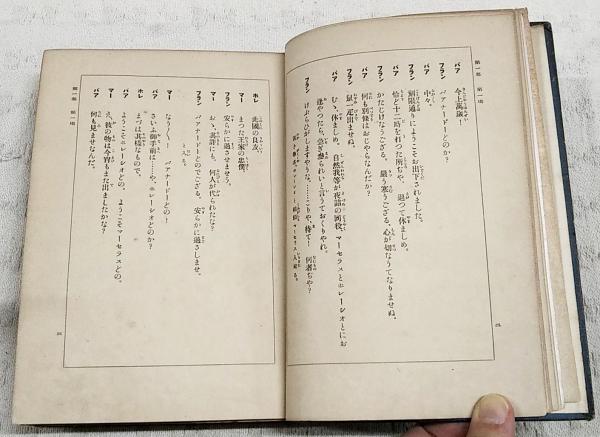 第一幕 第一場
バア 今上萬歳！
フラン バアナードーどのか？
バア 中々。
フラン 刻限通りにようこそお出下されました。
バア 恰ど十二時を打つた所ぢや、退つて休ましめ。
フラン かたじけなうござる。嚴う寒うござる、心が切なうてなりませぬ。
バア 何も別條はおじやらなんだか？
フラン 鼠一疋出ませぬ。
バア むゝ、休ましめ。自然我等が夜詰の同役、マーセラスとホレーシオとにお
逢やつたら、急ぎ參られいと言うておくりやれ。
フラン けはひがしまするやうな。……こりや、待て！何者ぢや？
ホレーシオー マーセラス
ホレ 此國の良友。
マー まつた王家の忠僕。
フラン 安らかに過させませう。
マー おゝ、さらばにも。何人が代られたな？
フラン バアナードーどのでござる。安らかに過さしませ。
マー なう〳〵、バアナードーどの！
バア さいふ御手前は……や、ホレーシオどのか？
ホレ まづは其樣なもので。
バア ようこそホレーシオどの。ようこそマーセラスどの。
マー え、彼の物は今宵もまた出ましたかな？
バア 何も見ませなんだ。
第一幕 第一場